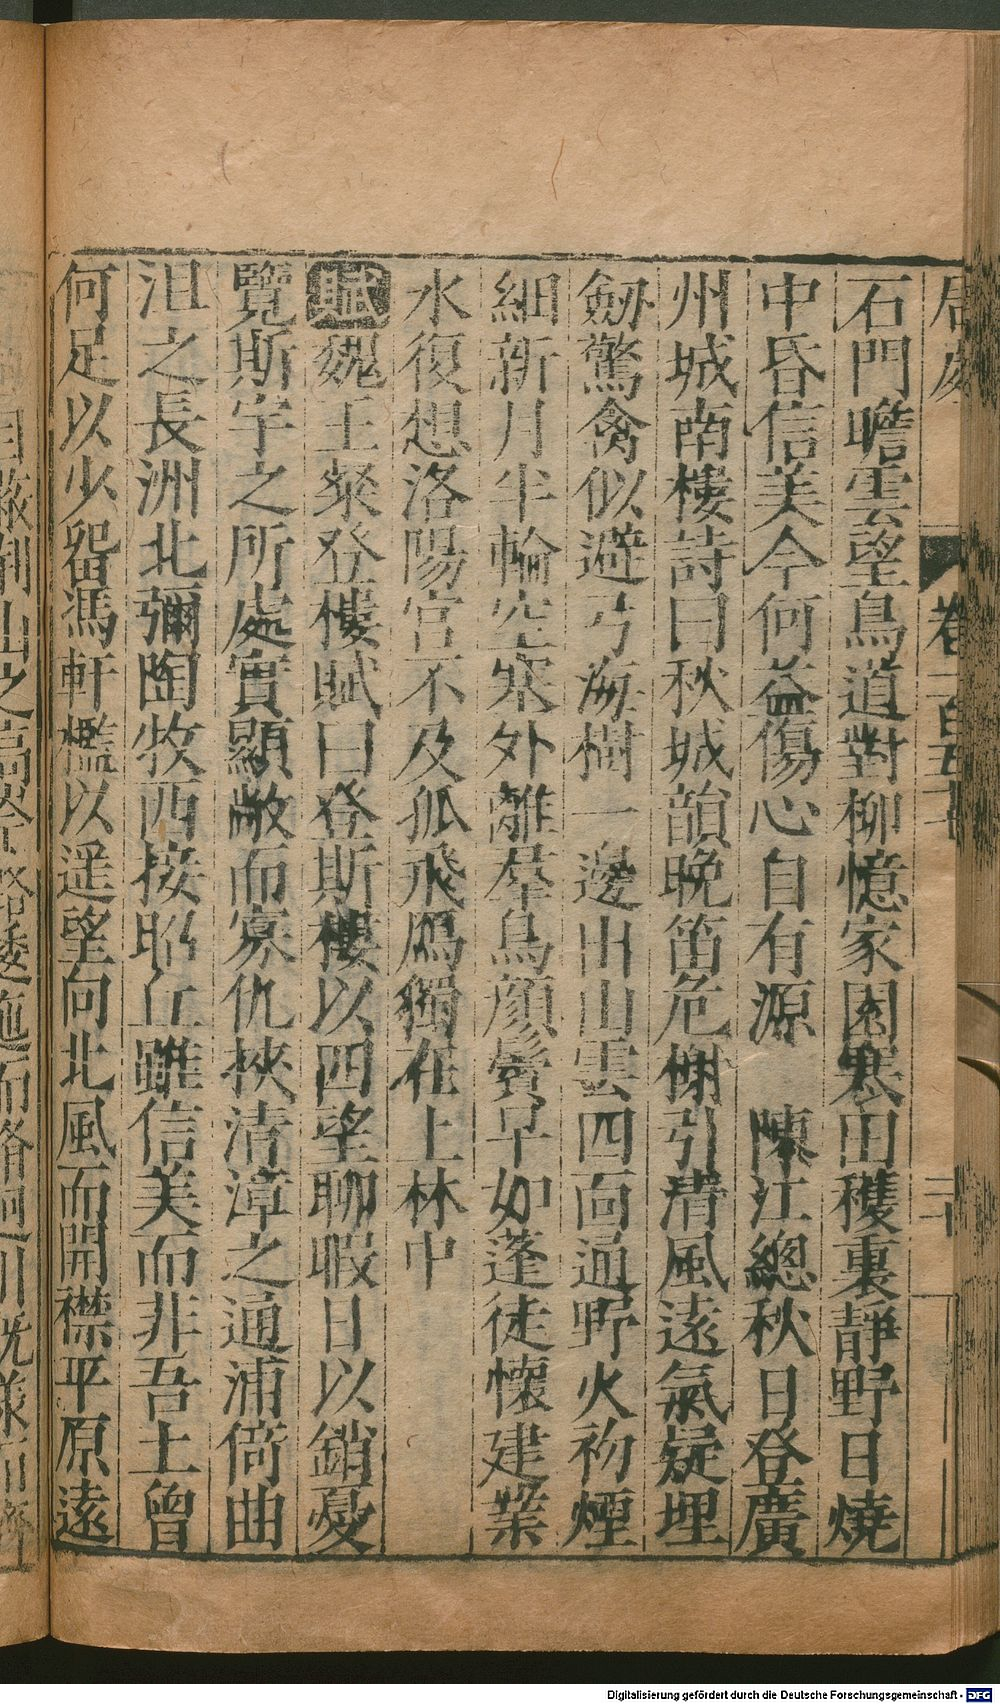 居處 卷一百五十 二十
石門瞻雲望鳥道對柳憶家園寒田穫裏靜野日燒
中昏信美今何益傷心自有源 陳江總秋日登廣
州城南樓詩曰秋城韻晚笛危榭引清風遠氣疑埋
劒驚禽似避弓海樹一邊出山雲四向通野火初煙
細新月半輪空塞外離羣鳥顔鬢早如蓬徒懷建業
水復想洛陽宮不及孤飛鴈獨在上林中
賦魏王粲登樓賦曰登斯樓以四望聊暇日以銷憂
覽斯宇之所處實顯敞而寡仇挾清漳之通浦倚曲
沮之長洲北彌陶牧西接昭丘雖信美而非吾土曾
何足以少留馮軒檻以遥望向北風而開襟平原遠
Digitalisierung gefördert durch die Deutsche Forschungsgemeinschaft - DFG